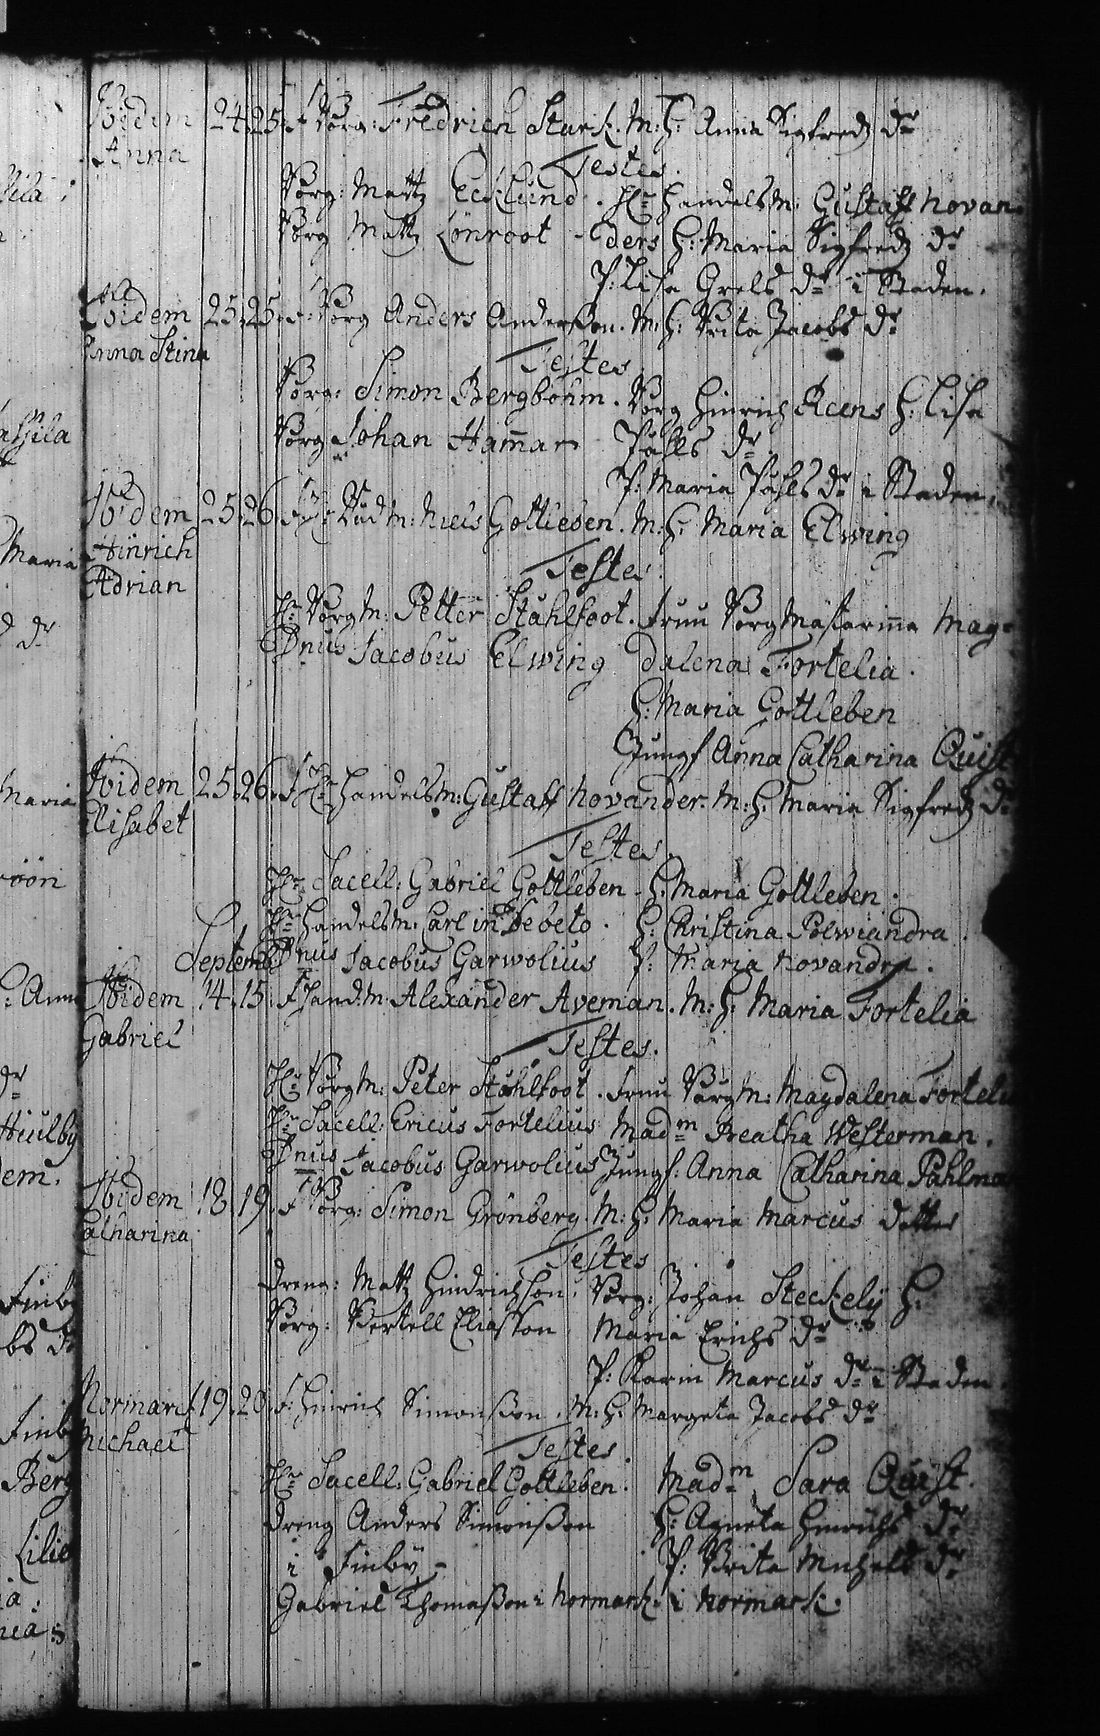 Ibidem 24. 25. F: Borg: Fredrich Stark. M: H: Anna Sigfredz dr
Anna
Testes.
Borg: Mattz Ecklund. Hr Handelsm: Gustaff Novan-
Borg Mattz Lönroot -ders H: Maria Sigfredz dr
P: Lisa Grels dr i Staden.
Ibidem 25. 25. F: Borg Anders Anderßon. M: H: Brita Jacobs dr
Anna Stina
Testes
Borg: Simon Bergbohm. Borg Hinrich Reens H: Lisa
Borg Johan Ham̄ar Påhls dr
P: Maria Påhls dr i Staden.
Ibidem 25. 26. F: Rådm: Niels Gottleben. M: H: Maria Elwing
Hinrich
Adrian
Testes.
Hr Borgm: Petter Ståhlfoot. Fruu Borgmästarin̄a Mag-
Dnus Jacobus Elwing dalena Fortelia.
H: Maria Gottleben
Jungf Anna Catharina Quist
Ibidem 25. 26. F Hr Handelsm: Gustaff Novander. M: H: Maria Sigfredz dr
Elisabet
Testes.
Hr Sacell: Gabriel Gottleben - H: Maria Gottleben.
Hr Handelsm: Carl in de Beto. H: Christina Polwiandra.
Dnus Jacobus Garwolius P: Maria Novandra.
Septemb
Ibidem 14. 15. F Hand:m: Alexander Aveman. M: H: Maria Fortelia
Gabriel
Testes.
Hr Borgm: Peter Ståhlfoot. Fruu Borgm: Magdalena Forteli
Hr Sacell: Ericus Fortelius Madm Beatha Westerman.
Dnus Jacobus Garwolius Jungf: Anna Catharina Pahlma
Ibidem 18. 19. F Borg: Simon Grönberg. M: H: Maria Marcus Dotter
Catharina
Testes
Dreng: Mattz Hindrichson. Borg: Johan Steckelÿ H:
Borg: Bertell Eliasson Maria Erichs dr
P: Karin Marcus dr i Staden
Normarck 19. 20. F: Hinrich Simonßon. M: H: Margeta Jacobs dr
Michael
Testes.
Hr Sacell: Gabriel Gottleben. Madm Sara Quist.
Dreng Anders Simonßon H: Agneta Hinrichs dr
i Finby - P: Brita Michels dr
Gabriel Thomaßon i Normark. i Normark.